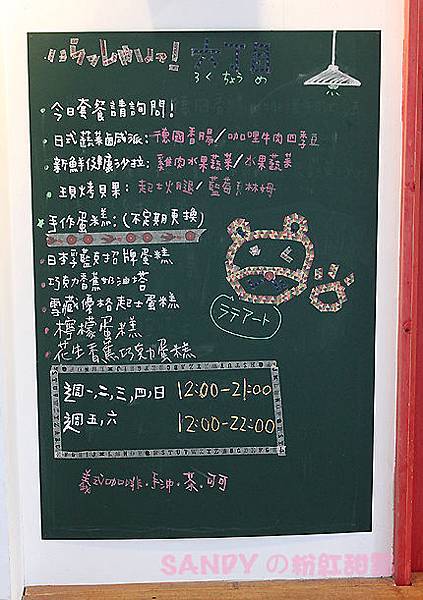 いらっしゃいませ! 六丁目
ろくちょうめ
・今日套餐請詢問!
・日式蔬菜鹹派:德國香腸/咖哩牛肉四季豆
・新鮮優雅沙拉:雞肉水果蔬菜/水果蔬菜
・現烤貝果:起士火腿/藍莓克林姆
手作蛋糕:(不定期更換)
・日本李藍克招牌蛋糕
・巧克力香蕉奶油塔
・雪藏優格起士蛋糕
・檸檬蛋糕
・花生香蕉巧克力蛋糕
ラテアート
週一,二,三,四,日 12:00-21:00
週五,六 12:00-22:00
義式咖啡.手沖.茶.可可
SANDYの粉紅甜